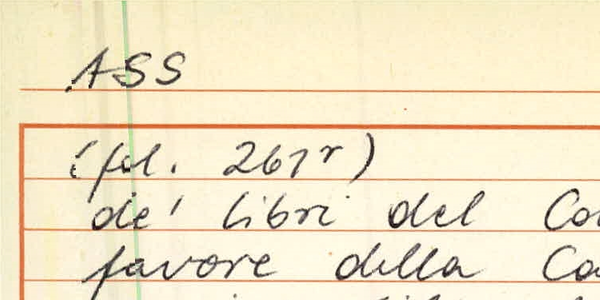 ASS
(fol. 267r)
de' libri del
favore della